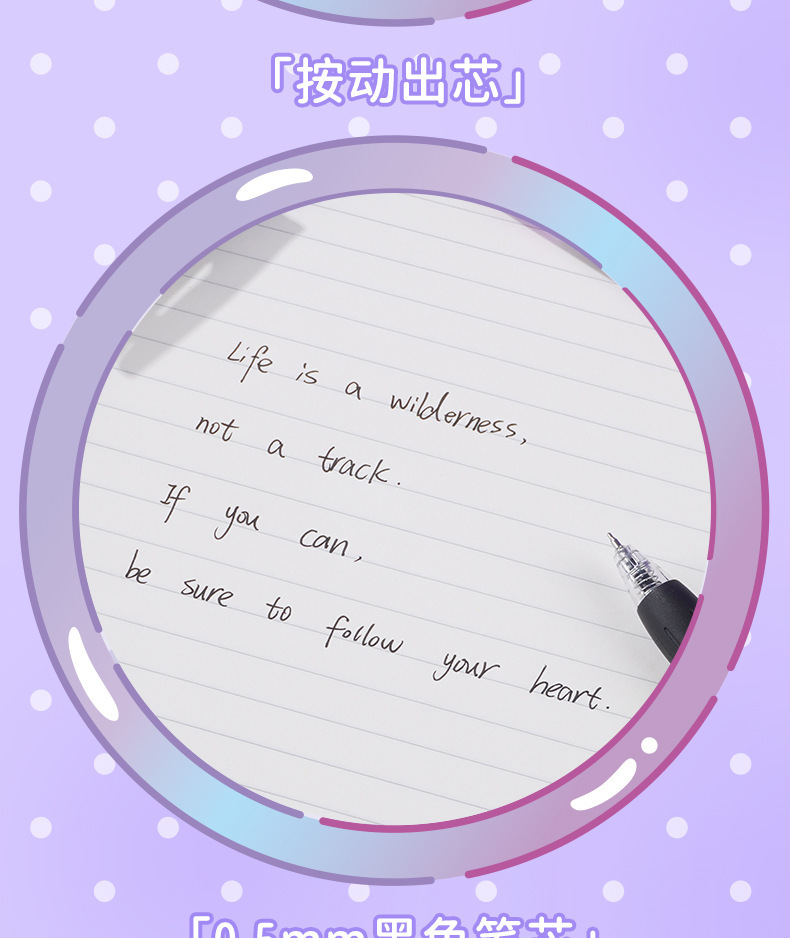 「按动出芯」
Life is a wilderness,
not a track.
If you can,
be sure to follow your heart.
「0.5mm黑色笔芯」